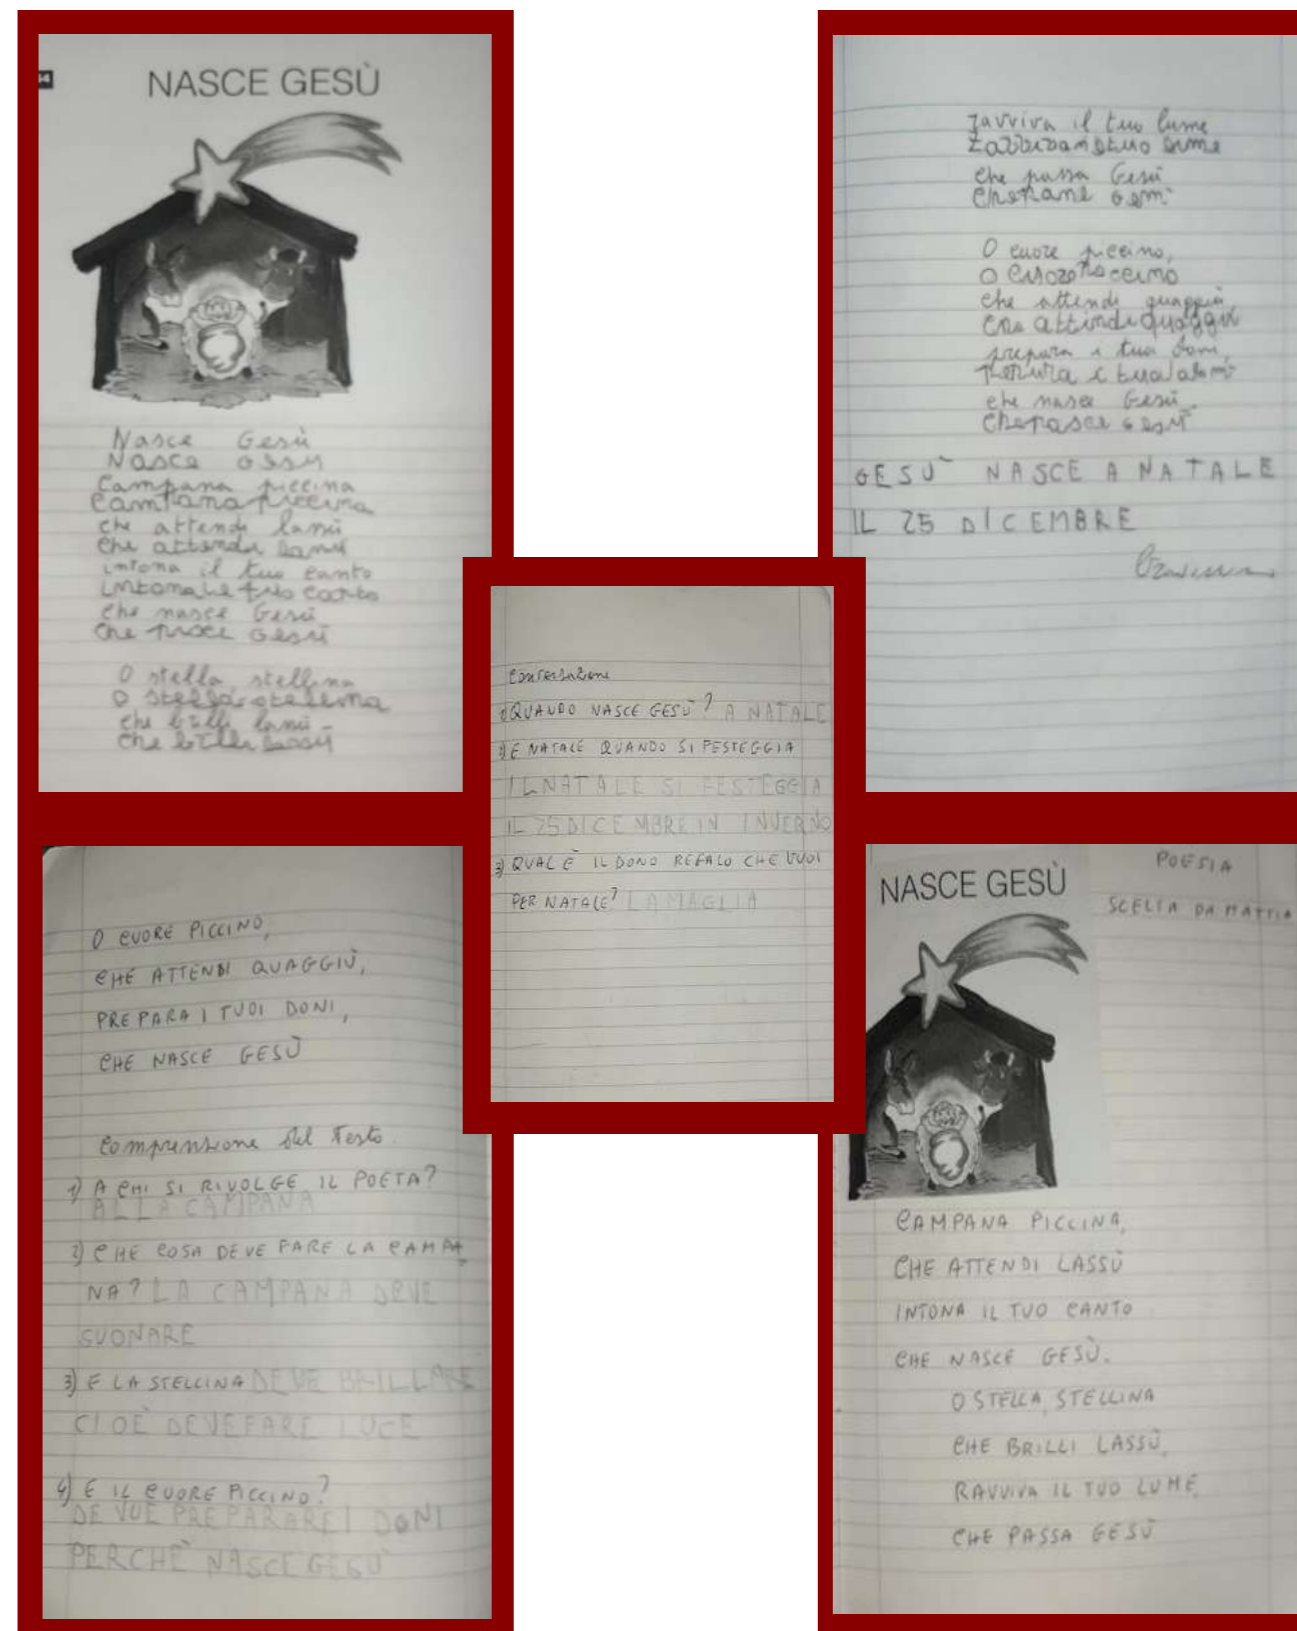 NASCE GESÙ
Nasce Gesù
Nasce Gesù
Campana piccina
Campana piccina
che attendi lassù
che attendi lassù
intona il tuo canto
intona il tuo canto
che nasce Gesù
che nasce Gesù
O stella, stellina
O stella stellina
che brilli lassù
che brilli lassù
ravviva il tuo lume
che passa Gesù
O cuore piccino,
o piccino
che attendi quaggiù,
che attindi quaggiù
prepara i tuoi doni,
che nasce Gesù
che nasce Gesù
GESÙ NASCE A NATALE
IL 25 DICEMBRE
Conversazione
1) QUANDO NASCE GESÙ? A NATALE
2) E NATALE QUANDO SI FESTEGGIA
IL NATALE SI FESTEGGIA
IL 25 DICEMBRE IN INVERNO
3) QUAL È IL DONO REGALO CHE VUOI
PER NATALE? LA MAGLIA
O CUORE PICCINO,
CHE ATTENDI QUAGGIÙ,
PREPARA I TUOI DONI,
CHE NASCE GESÙ
Comprensione del Testo.
1) A CHI SI RIVOLGE IL POETA?
ALLA CAMPANA
2) CHE COSA DEVE FARE LA CAMPA
NA? LA CAMPANA DEVE
SUONARE
3) E LA STELLINA DEVE BRILLARE
CIOÈ DEVE FARE LUCE
4) E IL CUORE PICCINO?
DEVUE PREPARARE I DONI
PERCHÈ NASCE GESÙ
NASCE GESÙ
POESIA
SCELTA DA MATTIA
CAMPANA PICCINA,
CHE ATTENDI LASSÙ
INTONA IL TUO CANTO
CHE NASCE GESÙ.
O STELLA, STELLINA
CHE BRILLI LASSÙ,
RAVVIVA IL TUO LUME,
CHE PASSA GESÙ